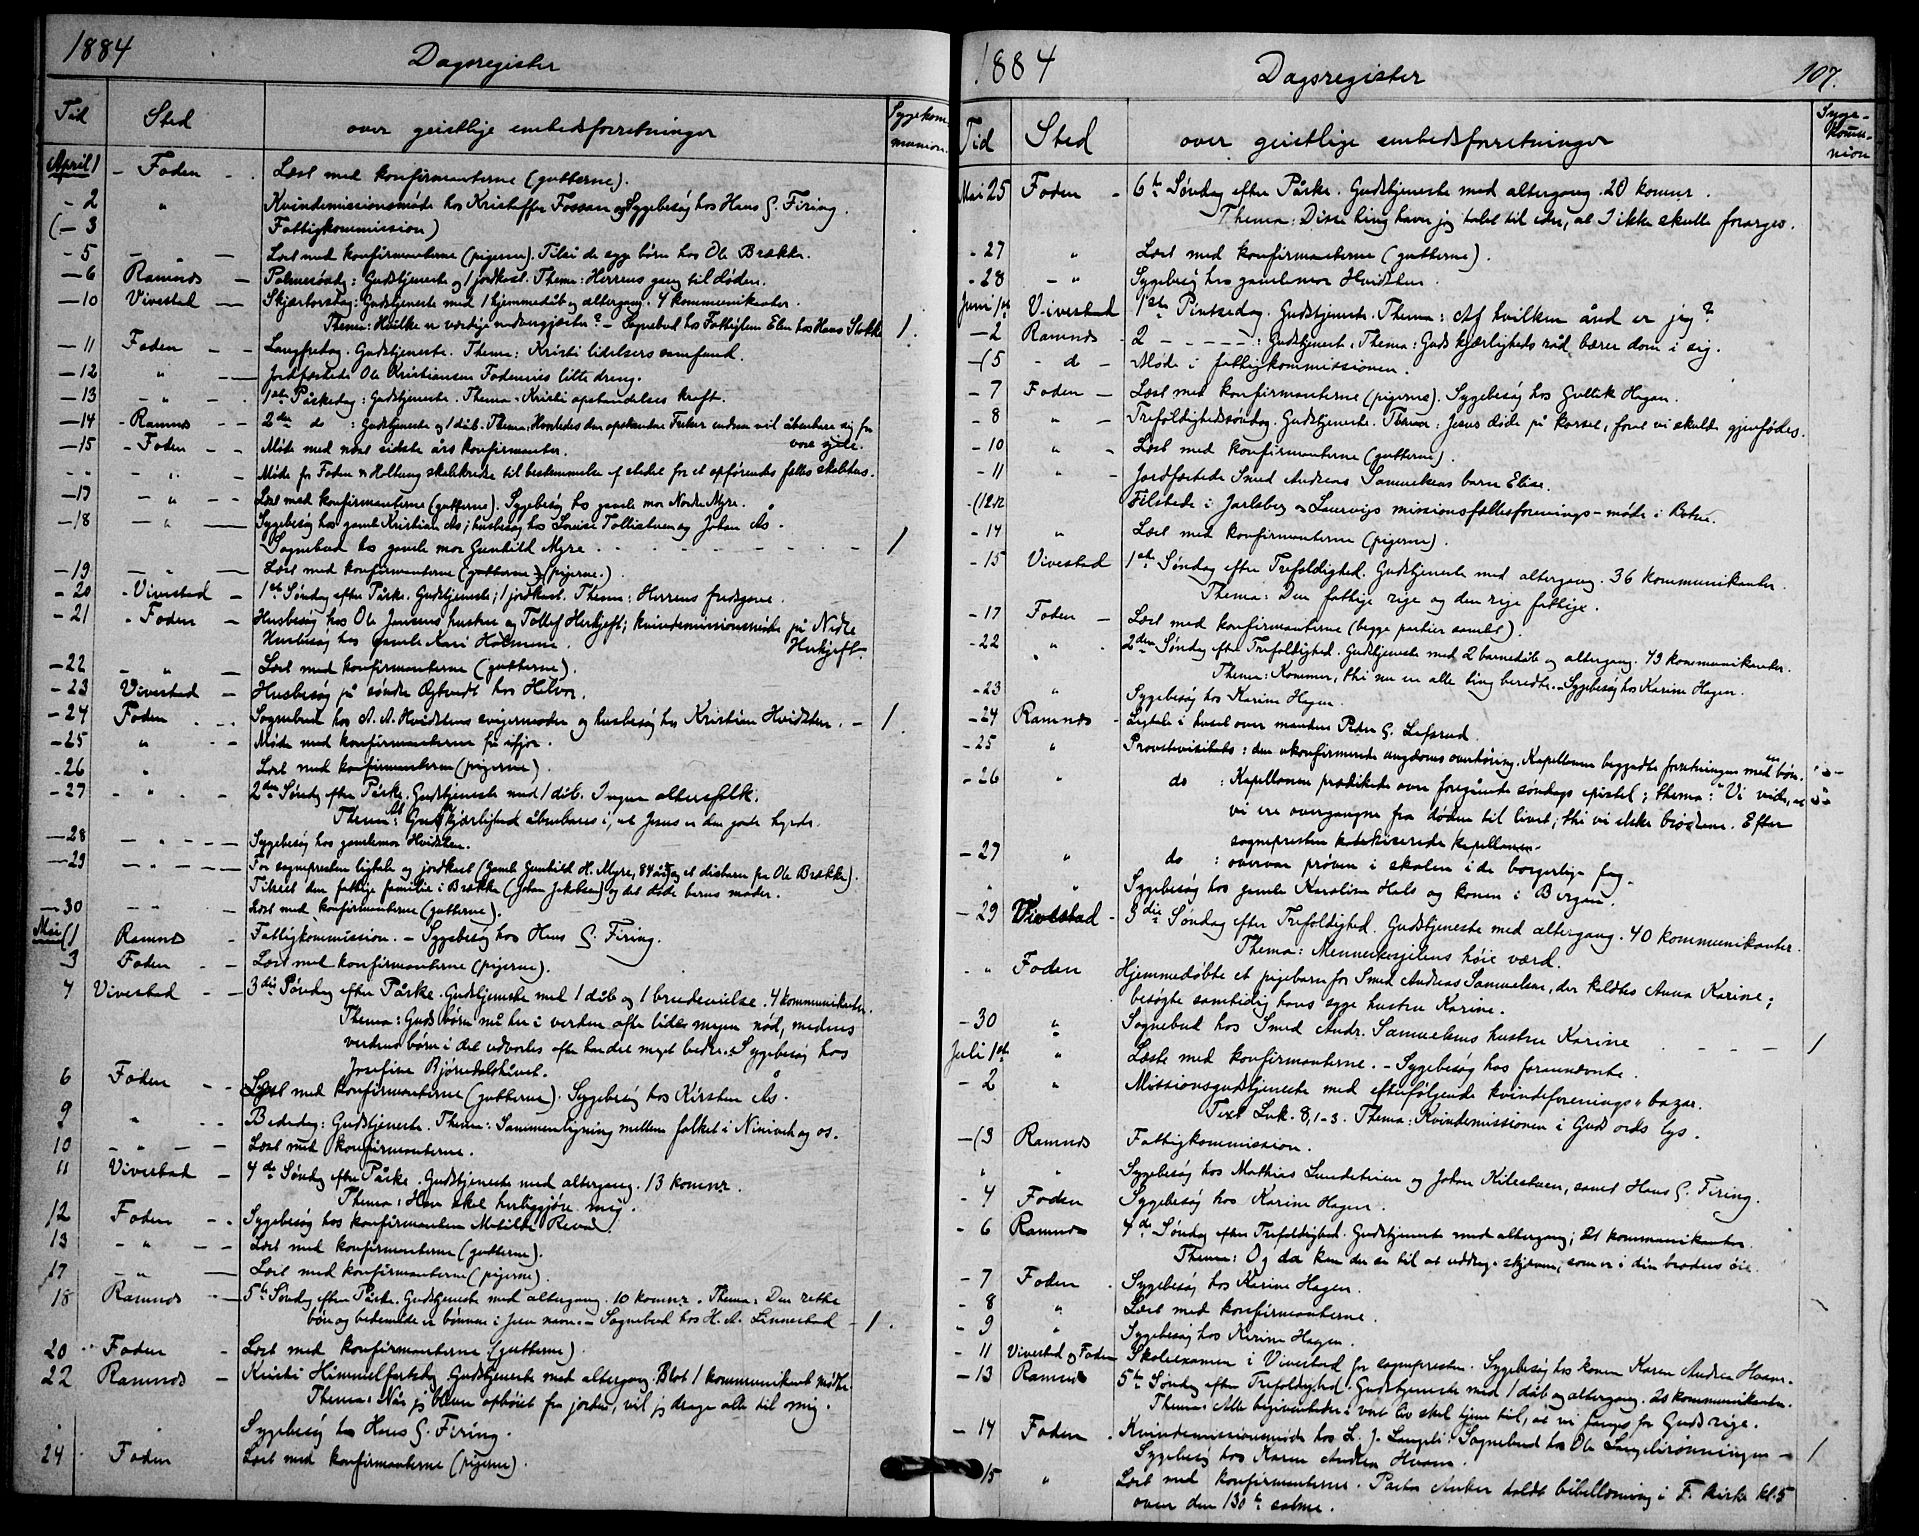 1884
Dagsregister
Tid Sted over geistlige embedsforretninger Sygekom-
munion.
April 1 - Foden - Læst med konfirmanterne (gutterne).
- 2 " Kvindemissionsmøde hos Kristoffer Fossan og Sygebesøg hos Hans G. Firing.
(- 3 Fattigkommission)
- 5 - " - Læst med konfirmanterne (pigerne). Tilså de syge børn hos Ole Brække.
- 6 Ramnes - Palmesøndg: Gudstjeneste og 1 jordkast. Thema: Herrens gang til døden.
- 10 Vivestad - Skjærtorsdag: Gudstjeneste med 1 hjemmedåb og altergang. 4 kommunikanter.
Thema: Hvilke er værdige nadvergjæster? - Sognebud hos Fattiglem Elen hos Hans Stokke 1.
- 11 Foden - - Langfredag. Gudstjeneste. Thema: Kristi lidelsers samfund.
- 12 " - Jordfæstede Ole Kristiansen Fodennes lille dreng.
- 13 - " - 1ste Påskedag: Gudstjeneste. Thema: Kristi opstandelses kraft.
- 14 - Ramnes - 2den do : Gudstjeneste og 1 dåb. Thema: Hvorledes den opstandne Frelser endnu vil åbenbare sig for
vore sjæle.
- 15 - Foden - Møde med nogle sidste års konfirmanter.
- " " - Møde for Foden og Holtung skolekredse til bestemmelse af stedet for et opførendes fælles skolehus.
- 17 - " - Læst med konfirmanterne (gutterne). Sygebesøg hos gamle mor Nordre Myre.
- 18 - " - Sygebesøg hos gamle Kristian Ås; husbesøg hos Lovise Tollestuen og Johan Ås.
Sognebud hos gamle mor Gunhild Myre - - - - - 1
- 19 - " - Læst med konfirmanterne (pigerne.).
- 20 - Vivestad - 1ste Søndag efter Påske. Gudstjeneste; 1 jordkast. Thema: Herrens fredsgave.
- 21 - Foden - Husbesøg hos Ole Jensens hustru og Tollef Herkjeft; kvindemissionsmøde på Nedre
Husbesøg hos gamle Kari Holmene. Herkjeft.
- 22 - " - Læst med konfirmanterne (gutterne).
- 23 Vivestad - Husbesøg på søndre Øgtvedt hos Helvor.
- 24 Foden - - Sognebud hos A. A. Hvidstens svigermoder og husbesøg hos Kristian Hvidsten. - 1.
- 25 " - - Møde med konfirmanterne fra ifjor.
- 26 " Læst med konfirmanterne (pigerne)
- 27 - " - 2den Søndag efter Påske. Gudstjeneste med 1 dåb. Ingen altersfolk.
Thema: At Guds kjærlighed åbenbares i, at Jesus er den gode hyrde.
- 28 - " - - - Sygebesøg hos gamlemor Hvidsten.
- 29 - " - - - For sognepresten ligtale og jordkast (Gamle Gunhild H. Myre, 84 år) og et disbarn fra Ole Brække).
Tilset den fattige familie i Brække (Johan Jakobsen) og det døde barns moder.
- 30 - " - Læst med konfirmanterne (gutterne).
Mai (1 Ramnes - Fattigkommission. - Sygebesøg hos Hans G. Firing.
3 Foden - - Læst med konfirmanterne (pigerne).
4 Vivestad - - 3die Søndag efter Påske. Gudstjeneste med 1 dåb og 1 brudevielse. 4 kommunikanter.
Thema: Guds børn må her i verden ofte lide megen nød, medens
verdens børn i det udvortes ofte har det meget bedre. Sygebesøg hos
Josefine Bjøredalshivet.
6 Foden - - Læst med konfirmanterne (gutterne). Sygebesøg hos Kirsten Ås.
9 " Bededag: Gudstjeneste. Thema: Sammenligning mellem folket i Ninive og os.
10 - " - Læst med konfirmanterne.
11 Vivestad - - 4de Søndag efter Påske. Gudstjeneste med altergang. 13 komnr.
Thema: Han skal herliggjøre mig.
12 Foden - - Sygebesøg hos konfirmanten Matilde Revå.
13 - " - - Læst med konfirmanterne (gutterne).
17 - " - Læst med konfirmanterne (pigerne).
18 Ramnes - 5te Søndag efter Påske. Gudstjeneste med altergang. 10 komnr. Thema: Den rette
bøn og bedemåde er bønnen i Jesu navn. - Sognebud hos H. A. Linnestad - 1.
20 Foden - Læst med konfirmanterne (gutterne).
22 Ramnes - Kristi Himmelfartsdag. Gudstjeneste med altergang. Blot 1 kommunikant mødte
Thema: Når jeg bliver ophøiet fra jorden, vil jeg drage alle til mig.
Sygebesøg hos Hans G. Firing.
24 Foden Læst med konfirmanterne (pigerne).
1884 Dagsregister 107.
Tid Sted over geistlige embedsforretninger Syge-
kommu-
nion
Mai 25 Foden - 6te Søndag efter Påske. Gudstjeneste med altergang. 20 komnr.
Thema: Disse ting haver jeg talet til eder, at I ikke skulle forarges.
- 27 " Læst med konfirmanterne (gutterne).
- 28 - " Sygebesøg hos gamlemor Hvidsten.
Juni 1ste Vivestad 1ste Pintsedag. Gudstjeneste. Thema: Af hvilken ånd er jeg?
- 2 Ramnes - 2 - - - - - : Gudstjeneste. Thema: Guds kjærligheds råd bærer dom i sig.
- (5 - do - Møde i fattigkommissionen.
- 7 Foden - Læst med konfirmanterne (pigerne). Sygebesøg hos Gullik Hagen.
- 8 " - Trefoldighedssøndag. Gudstjeneste. Thema: Jesus døde på korset, forat vi skulde gjenfødes.
- 10 " - Læst med konfirmanterne (gutterne).
- 11 " - Jordfæstede Smed Andreas Samuelsens barn Elise.
- (12 Tilstede i Jarlsberg og Laurvigs missionsfællesforenings-møde i Botne.
- 14 " Læst med konfirmanterne (pigerne).
- 15 Vivestad 1ste Søndag efter Trefoldighed. Gudstjeneste med altergang. 36 kommunikanter.
Thema: Den fattige rige og den rige fattige.
- 17 Foden - Læst med konfirmanterne (begge partier samlet).
- 22 " . 2den Søndag efter Trefoldighed. Gudstjeneste med 2 barnedåb og altergang. 49 kommunikanter.
Thema: Kommer, thi nu er alle ting beredte. Sygebesøg hos Karine Hagen.
- 23 " Sygebesøg hos Karine Hagen.
- 24 Ramnes - Ligtale i huset over manden Peder G. Lefsrud.
- 25 " Provstevisitats: den ukonfirmerede ungdoms overhøring. Kapellanen begyndte forretningen med en bøn.
- 26 " do : Kapellanen prædikede over foregående søndags epistel; thema: "Vi vide, at
vi ere overgangne fra døden til livet; thi vi elske brødrene. Efter
sognepresten katekiserede kapellanen.
- 27 " do : overvar prøven i skolen i de borgerlige fag.
" " Sygebesøg hos gamle Karoline Hals og konen i Bergan.
- 29 Vivestad - 3die Søndag efter Trefoldighed. Gudstjeneste med altergang. 40 kommunikanter.
Thema: Menneskesjælens høie værd.
- " Foden Hjemmedøbte et pigebarn for Smed Andreas Samuelsen, der kaldtes Anna Karine;
besøgte samtidig hans syge hustru Karine.
- 30 " Sognebud hos Smed Andr. Samuelsens hustru Karine - - - 1
Juli 1ste " Læste med konfirmanterne. - Sygebesøg hos forannævnte.
- 2 " Missionsgudstjeneste med efterfølgende kvindeforenings"bazar.
Text Luk. 8, 1-3. Thema: Kvindemissionen i Guds ords lys.
- (3 Ramnes Fattigkommission.
" " Sygebesøg hos Mathias Lundeteien og Johan Kilestuen, samt Hans G. Firing.
- 4 Foden Sygebesøg hos Karine Hagen.
- 6 Ramnes 4de Søndag efter Trefoldighed. Gudstjeneste med altergang; 21 kommunikanter.
Thema: Og da kan du se til at uddrage skjæven, som er i din broders øie.
- 7 Foden . Sygebesøg hos Karine Hagen.
- 8 " Læst med konfirmanterne.
- 9 " Sygebesøg hos Karine Hagen.
- 11 Vivestad og Foden Skoleexamen i Vivestad for sognepresten. Sygebesøg hos konen Karen Andrea Hvam.
- 13 Ramnes 5te Søndag efter Trefoldighed. Gudstjeneste med 1 dåb og altergang. 20 kommunikanter.
Thema: Alle begivenheder i vort liv skal tjene til, at vi fanges for Guds rige.
- 14 Foden . Kvindemissionsmøde hos L. J. Langeli. Sognebud hos Ole Langelirønningen - 1
Sygebesøg hos Karen Andrea Hvam.
15 " Læst med konfirmanterne. Pastor Anker holdt bibellæsning i F. kirke kl. 5
over den 130te salme.